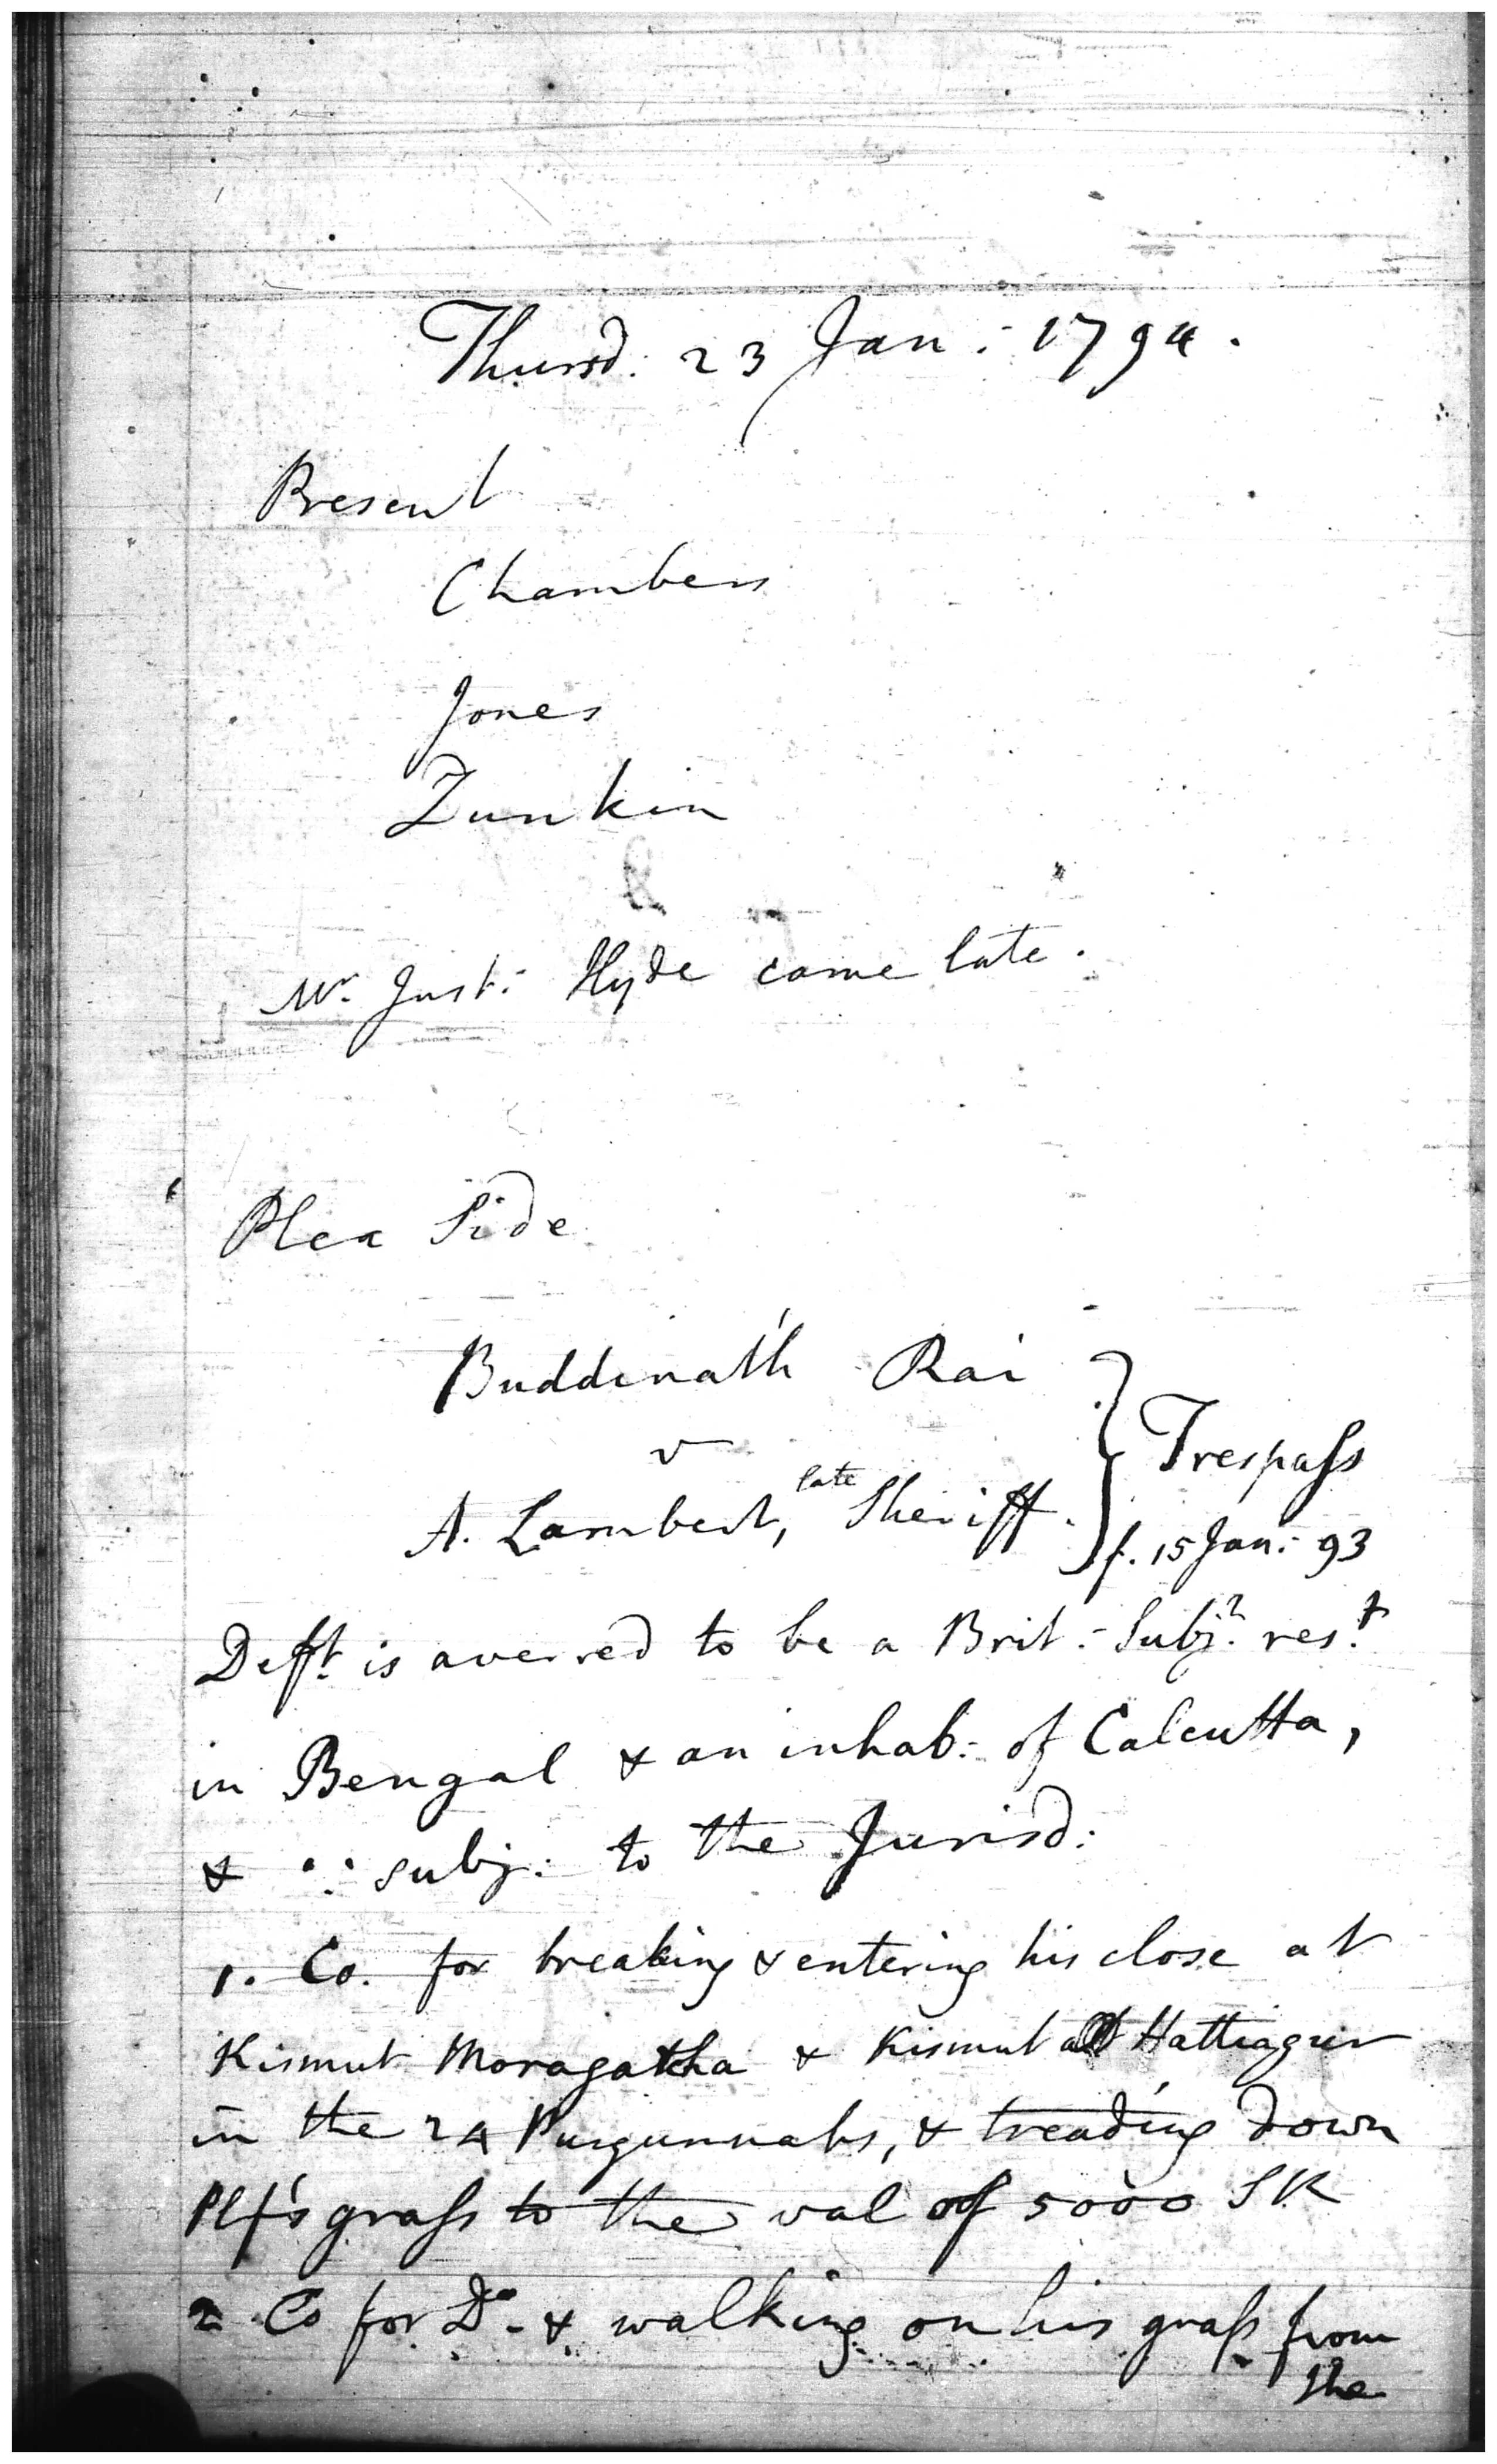 Thursd: 23 Jan: 1794.
Present
Chambers
Jones
Dunkin
Mr. Just: Hyde came late.
Plea Side
Buddinath Rai
v
A. Lambert, late Sheriff.
Trespass
f. 15 Jan: 93
Deft. is averred to be a Brit: Subj.t res.t
in Bengal & an inhab: of Calcutta,
& ∴ subj: to the Jurisd:
1. Co. for breaking & entering his close at
Kismut Moragatcha & Kismut Hattiagur
in the 24 Purgunnahs, & treading down
Plf's grass to the val of 5000 SR
2 Co for Do. & walking on his grass from
the